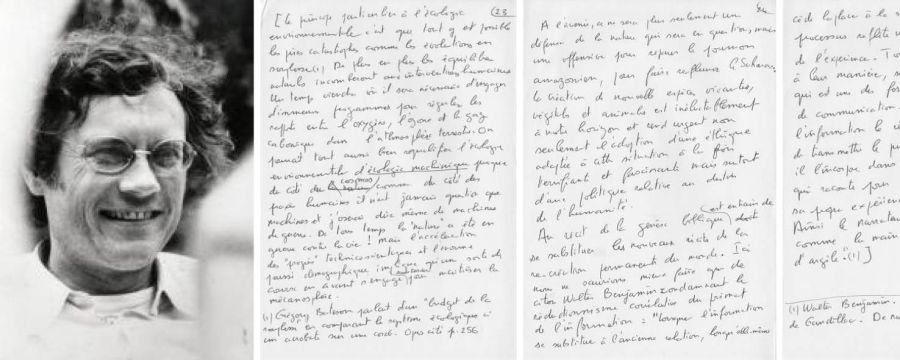 (23
[Le principe particulier à l'écologie
environnementale c'est que tout y est possible
les pires catastrophes comme les évolutions en
souplesse(1). De plus en plus les équilibres
naturels incomberont aux interventions humaines
Un temps viendra où il sera nécessaire d'engager
d'immenses programmes pour réguler les
rapports entre l'oxygène, l'ozone et le gaz
carbonique dans l'atmosphère terrestre. On
pourrait tout aussi bien requalifier l'écologie
environnementale d'écologie machinique puisque
du côté du cosmos comme du côté des
praxis humaines il n'est jamais question que
machines et j'oserai dire même de machines
de guerre. De tous temps la "nature" a été en
guerre contre la vie ! Mais l'accélération
des "progrès" technico-scientifiques et l'énorme
poussée démographique implique qu'une sorte de
course en avant s'engage pour maîtriser la
mécanosphère.
(1) Gregory Bateson parlait d'un "budget de la
souplesse" en comparant le système écologique à
un acrobate sur une corde. Opus cité p. 256
24
A l'avenir, ce ne sera plus seulement une
défense de la nature qui sera en question, mais
une offensive pour réparer le poumon
amazonien, pour faire refleurir le Sahara.
la création de nouvelles espèces vivantes,
végétales et animales est inéluctablement
à notre horizon et rend urgent non
seulement l'adoption d'une éthique
adaptée à cette situation à la fois
terrifiante et fascinante mais surtout
d'une politique relative au destin
de l'humanité.
Au récit de la genèse biblique est entrain de
se substituer les nouveaux récits de la
re-création permanente du monde. Ici
nous ne saurions mieux faire que de
citer Walter Benjamin condamnant le
réductionnisme corrélatif du primat
de l'information : "lorsque l'information
se substitue à l'ancienne relation, lorsqu'elle-même
cède la place à la s
processus reflète u
de l'expérience. To
à leur manière, s
qui est une des for
de communication
l'information le r
de transmettre le pu
il l'incorpore dans
qui raconte pour
sa propre expérien
Ainsi le narrateu
comme la main
d'argile."(1)]
(1) Walter Benjamin.
de Gandillac. De n